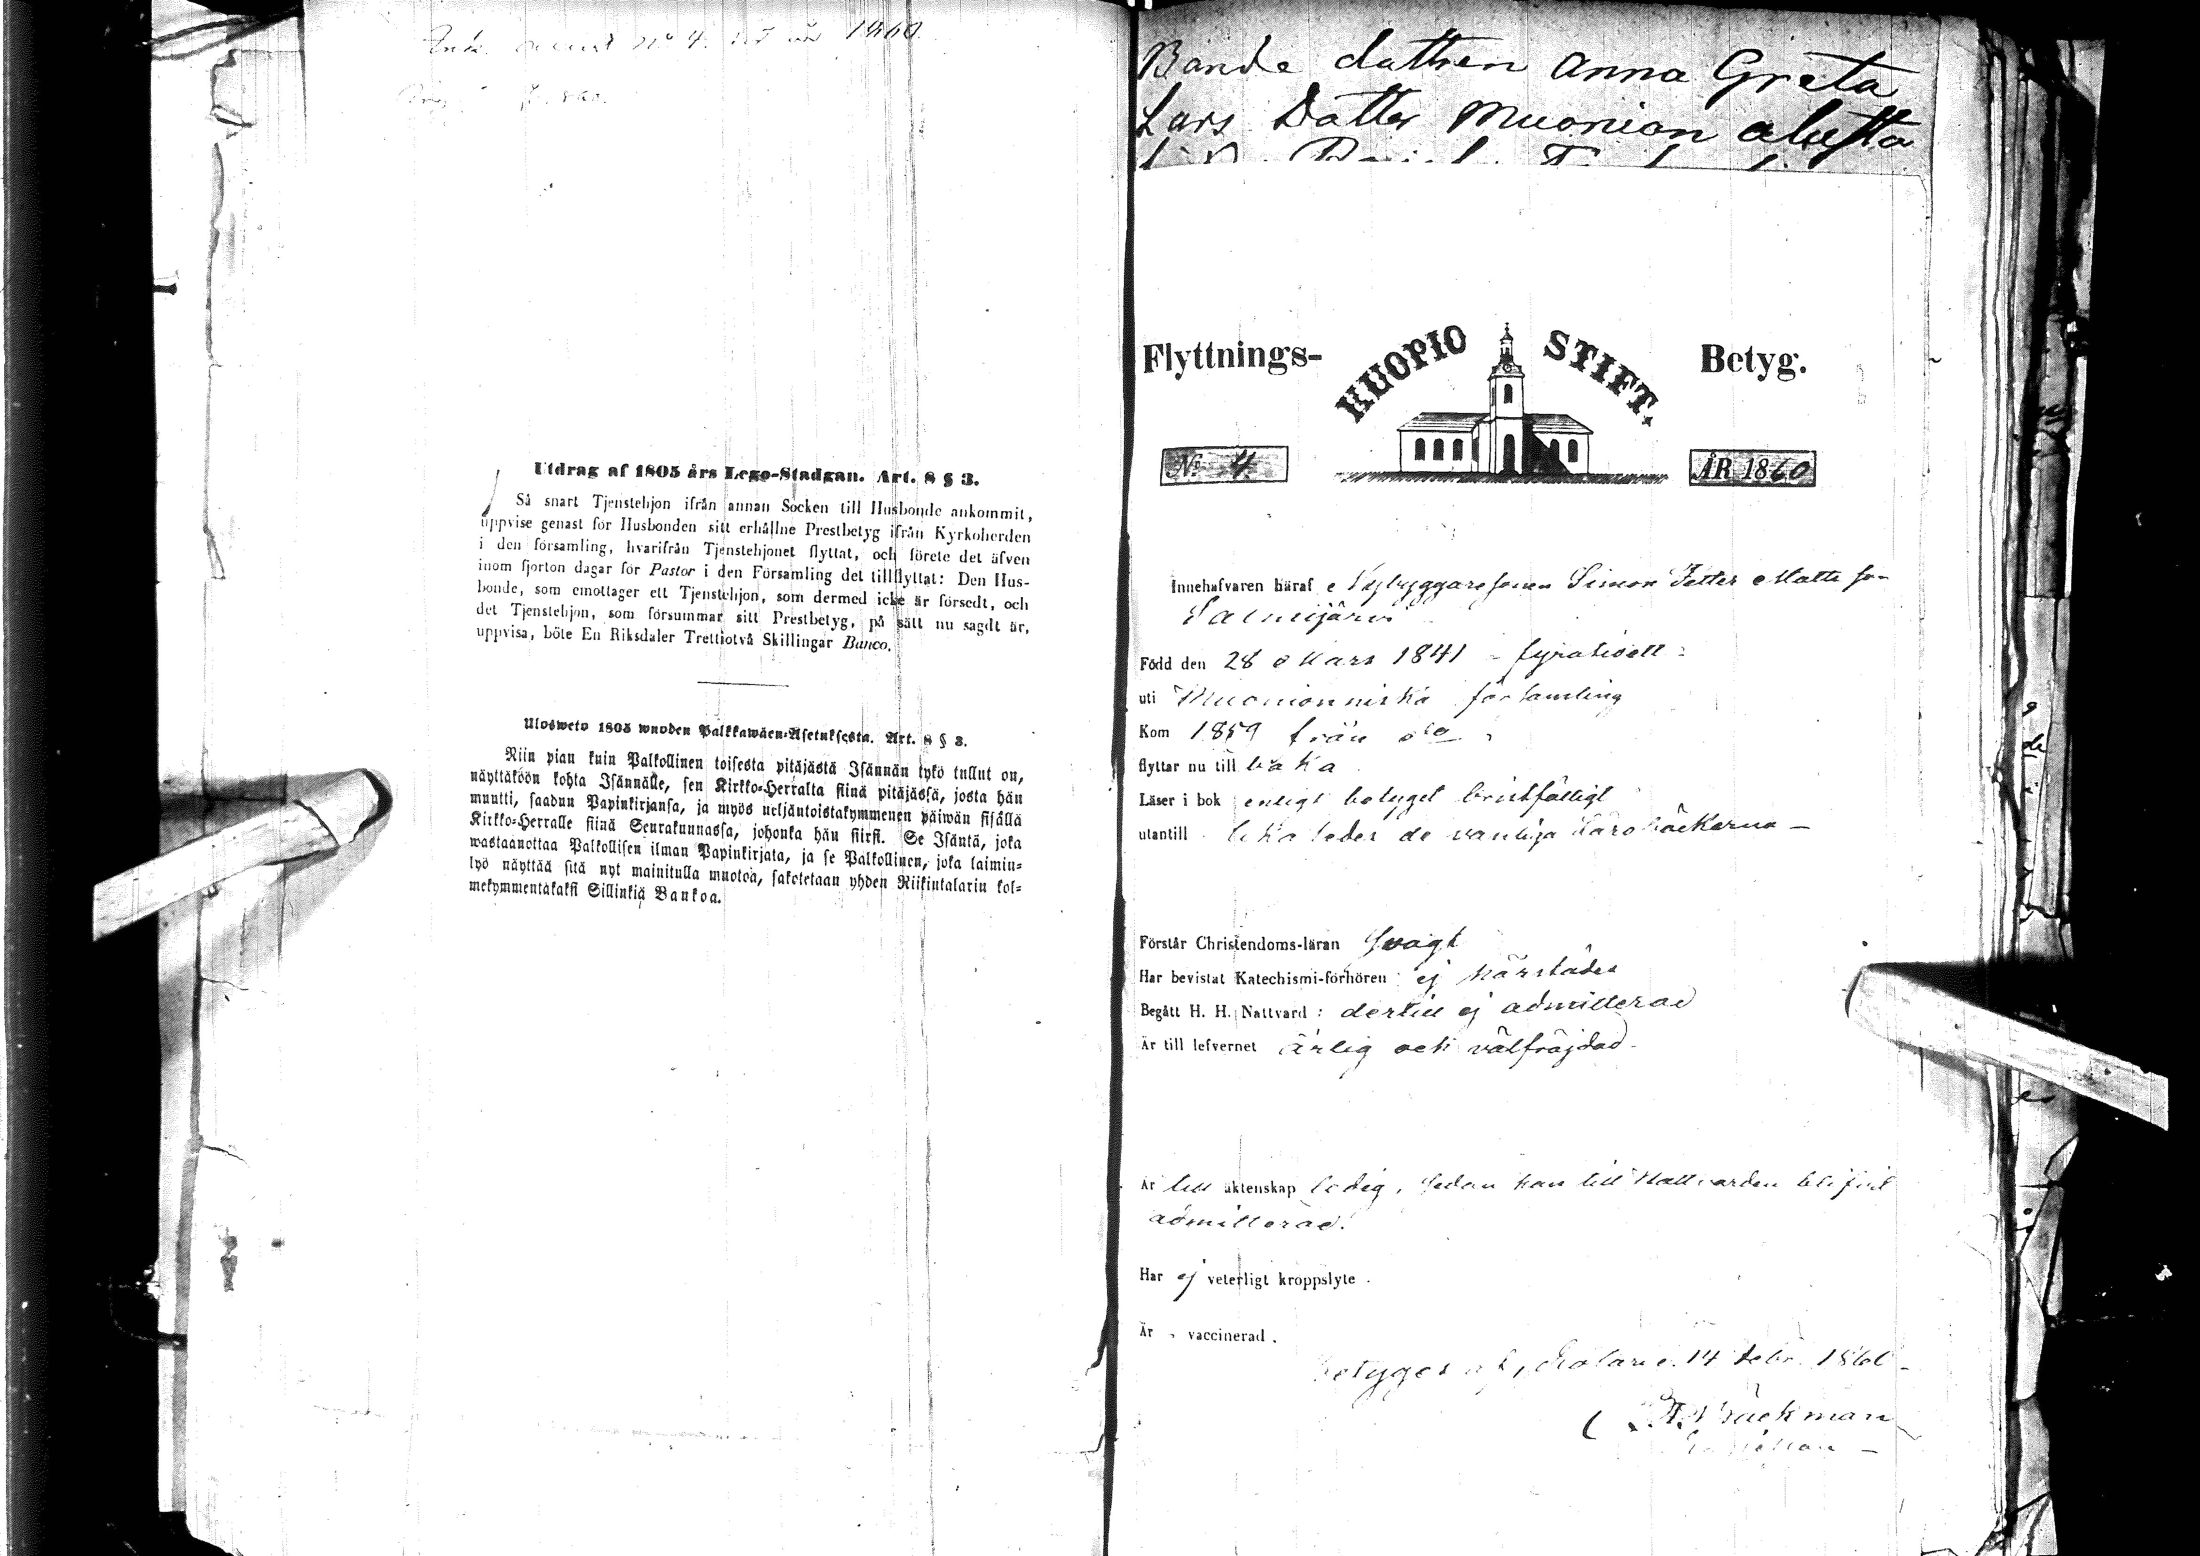 1860
Utdrag af 1805 års Lego-Stadgan. Art. 8 § 3.
Så snart Tjenstehjon ifrån annan Socken till Husbonde ankommit,
uppvise genast för Husbonden sitt erhållne Prestbetyg ifrån Kyrkoherden
i den församling, hvarifrån Tjenstehjonet flyttat, och förete det äfven
inom fjorton dagar för Pastor i den Församling det tillflyttat: Den Hus-
bonde, som emottager ett Tjenstehjon, som dermed icke är försedt, och
det Tjenstehjon, som försummar sitt Prestbetyg, på sätt nu sagdt är,
uppvisa, böte En Riksdaler Trettiotvå Skillingar Banco.
Ulosweto 1805 wuoden Palkkawäen-Asetuksesta. Art. 8 § 3.
Niin pian kuin Palkollinen toisesta pitäjästä Isännän tykö tullut on,
näyttäköön kohta Isännälle, sen Kirkko-Herralta siinä pitäjässä, josta hän
muutti, saadun Papinkirjansa, ja myös neljäntoistakymmenen päiwän sisällä
Kirkko-Herralle siinä Seurakunnassa, johonka hän siirsi. Se Isäntä, joka
wastaanottaa Palkollisen ilman Papinkirjata, ja se Palkollinen, joka laimin-
lyö näyttää sitä nyt mainitulla muotoa, sakotetaan yhden Riikintalarin kol-
mekymmentäkaksi Sillinkiä Bankoa.
Bonde dattren Anna Greta
Lars Datter Muonion alusta
Flyttnings- KUOPIO STIFT. Betyg.
No 4 ÅR 1860
Innehafvaren häraf Nybyggaresonen Simon Petter Matts son
Salmijärvi
Född den 28 Mars 1841 - fyratioett
uti Muonionniska församling
Kom 1859 från
flyttar nu till baka
Läser i bok enligt betyget bristfälligt
utantill lika ledes de vanliga Läroböckerna -
Förstår Christendoms-läran Svagt
Har bevistat Katechismi-förhören ej härstädes
Begått H. H. Nattvard: dertill ej admitterad
Är till lefvernet ärlig och välfräjdad.
Är till äktenskap ledig, sedan han till Nattvarden blifvit
admitterad.
Har ej veterligt kroppslyte.
Är vaccinerad.
betygas af, Kolari d. 14 Febr. 1860
Bäckman